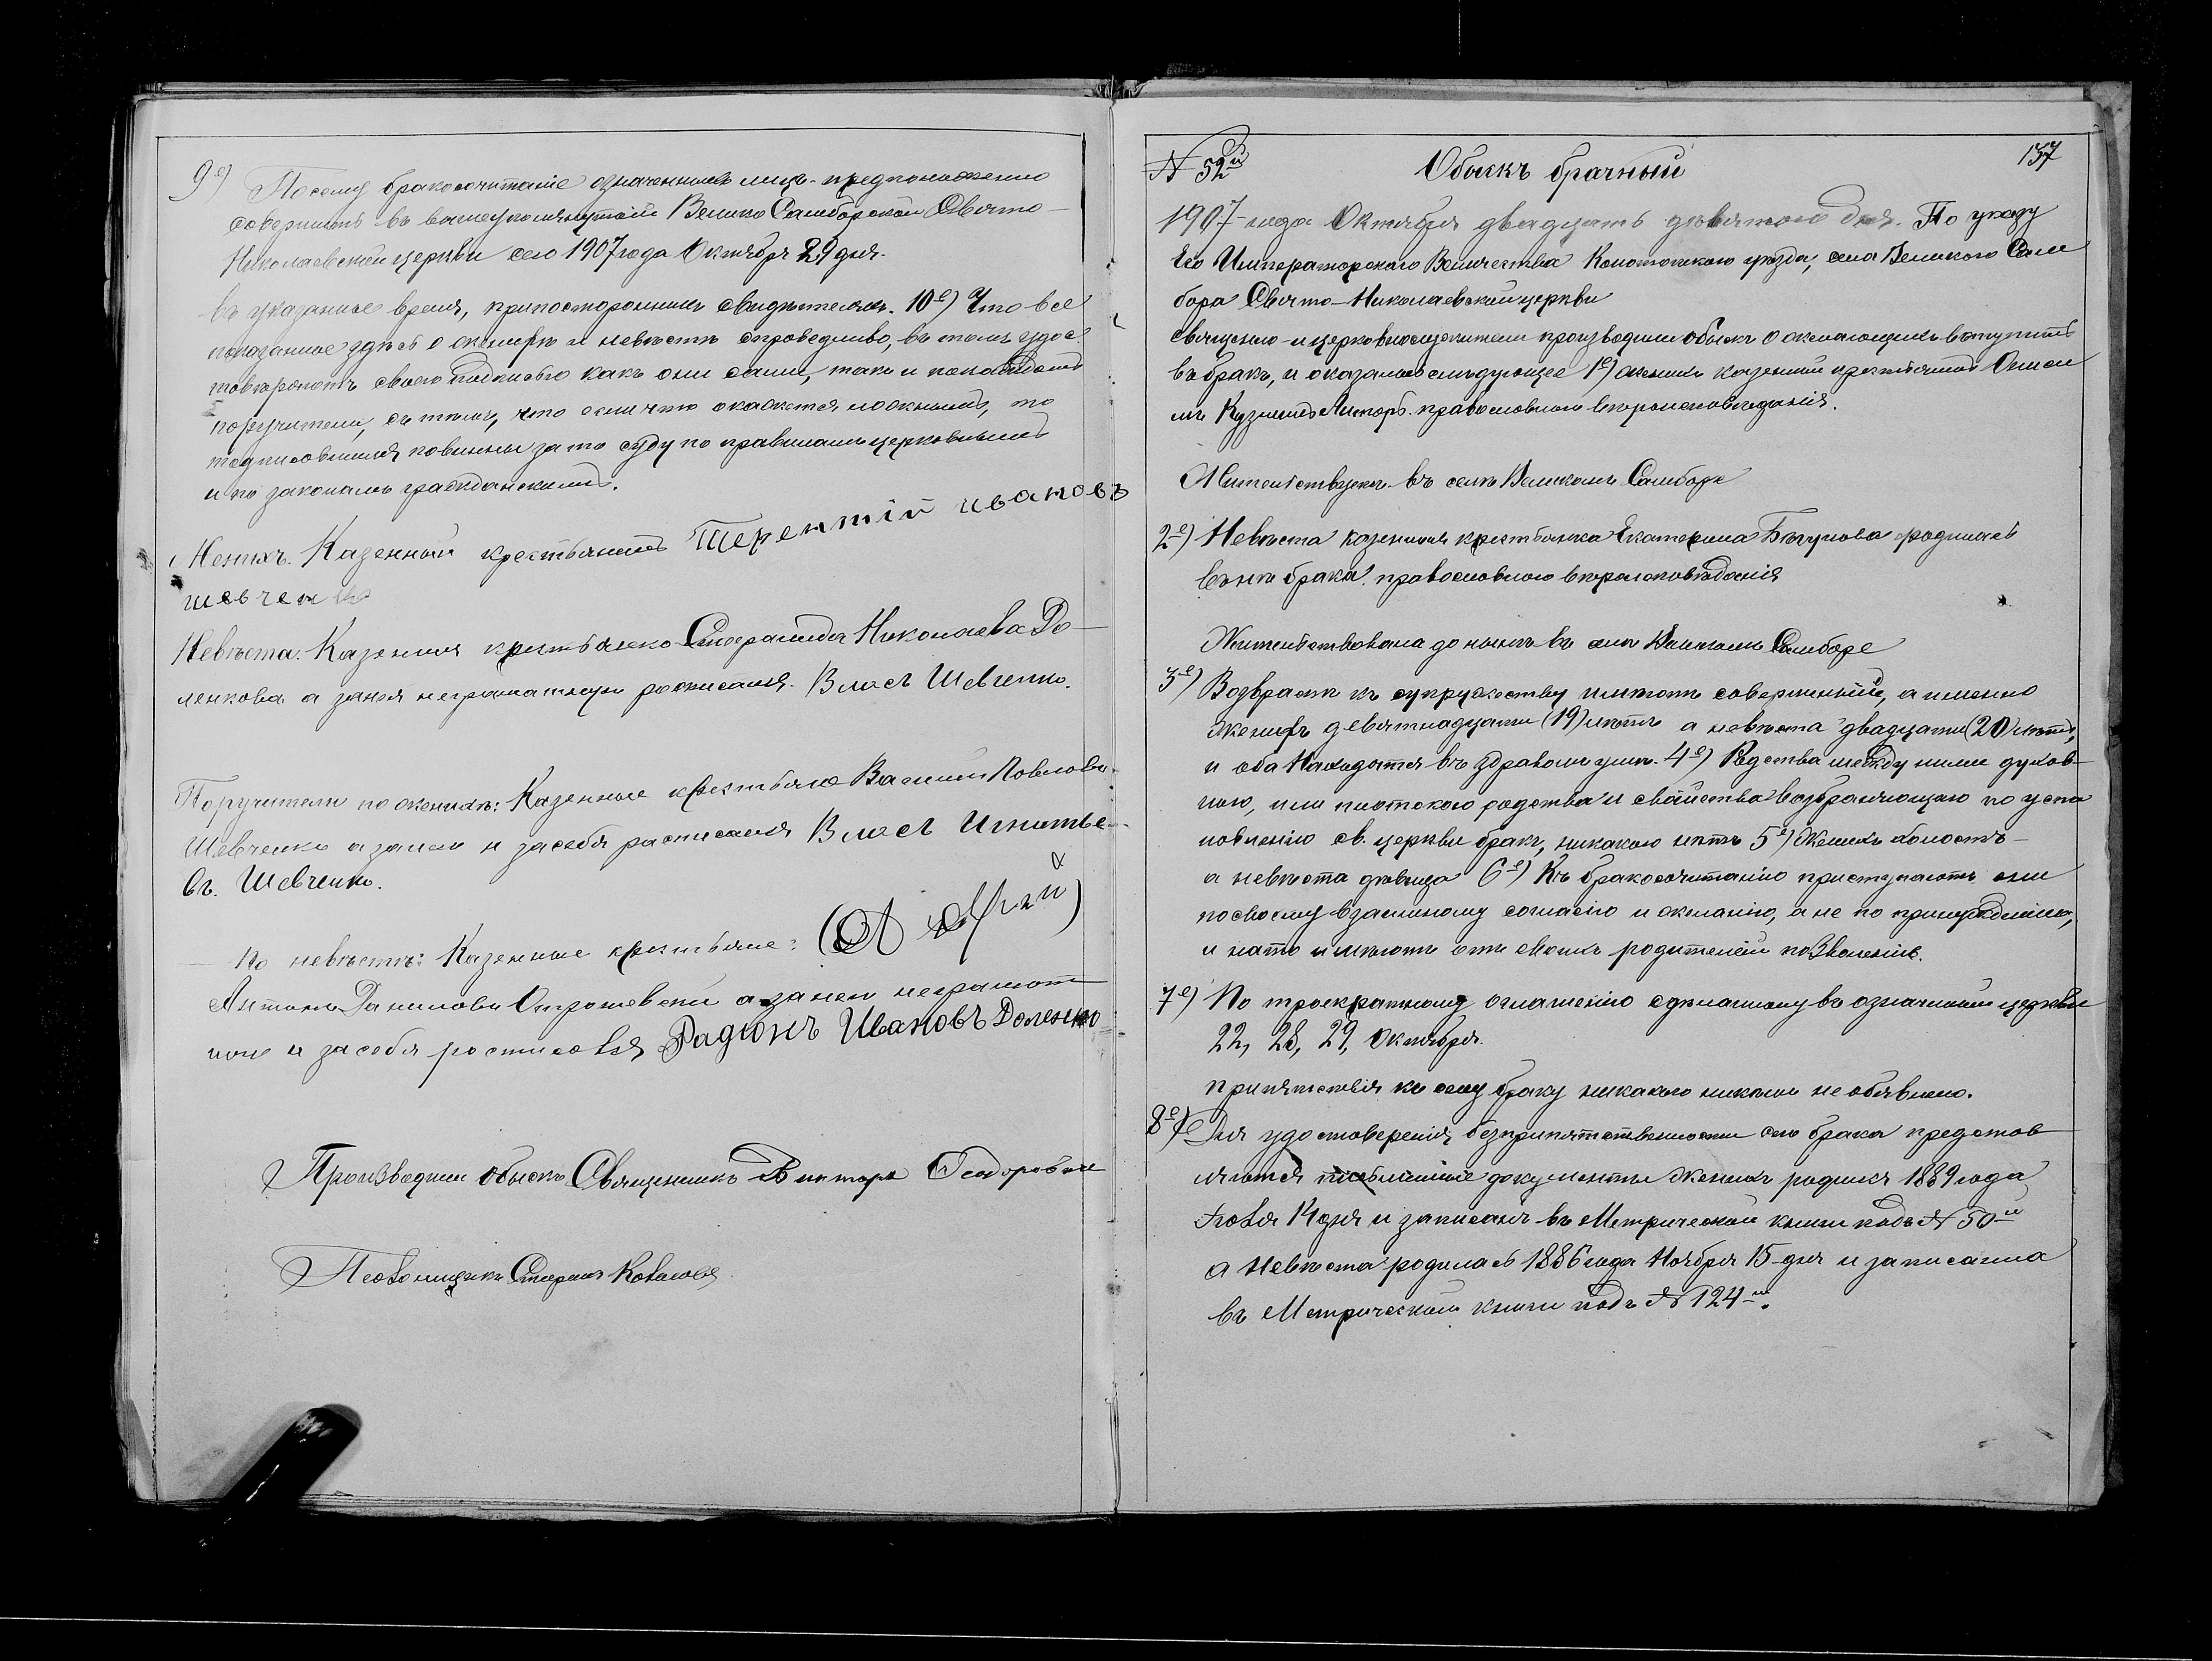 9е) Посему бракосочитаніе означенныхъ лицъ предположено
совершить въ вышеупомянутой Велико Самборской Свято-
Николаевской церкви сего 1907 года Октября 29 дня.
въ указанное время, при постороннихъ свидѣтеляхъ. 10е) Что все
показанное здѣсь о женихѣ и невѣстѣ справедливо, въ томъ удос-
товѣряютъ своею подписью какъ они сами, такъ и по каждомъ
поручители, съ тѣмъ, что если что окажется ложнымъ, то
подписавшіеся повинны за то суду по правиламъ церковнымъ
и по законамъ гражданскимъ.
Женихъ. Казенный крестьянинъ Терентій ивановъ
шевченко
Невѣста. Казенная крестьянка Николаева До-
ленкова а за нея неграматную росписался Власъ Шевченко.
Поручители по женихѣ: Казенные крестьяне Василий Павловъ
Шевченко а за него и за себя расписался Власъ Игнатье-
въ. Шевченко.
По невѣстѣ: Казенные крестьяне:
Антонъ Даниловъ а за него неграмот
ного и за себя росписовся Радіонъ Ивановъ Доленко
Производили обыскъ Священникъ Викторъ
Псаломщикъ Стефанъ
№ 52й Обыскъ брачный 157
1907 года Октября двадцать девятого дня. По указу
Его Императорскаго Величества Конотопскаго уѣзда, села Великого Сам
бора Свято-Николаевской церкви
священно-и церковнослужители производили обыскъ о желающихъ вступить
въ бракъ, и оказалось слѣдующее 1е) женихъ казенный крестьянинъ
православного вѣроисповѣданія.
Жительствуетъ въ селѣ Великомъ Самборѣ
2е) Невѣста казенная крестьянка Екатерина родилась
православного вѣроисповѣданія
Жительствовала до нынѣ въ селѣ Великомъ Самборе
3е) Возврастъ къ супружеству имѣютъ совершенный, а именно
женихъ девятнадцати (19) лѣтъ а невѣста двадцати (20) лѣтъ,
и оба находятся въ здравомъ умѣ. 4е) Родства между ними духов-
ного, или плотского родства и свойства возбраняющаго по уста
новленію св. церкви бракъ, никакого нѣтъ 5е) Женихъ холостъ-
а невѣста дѣвица 6е) Къ бракосочитанію приступаютъ они
по своему взаимному согласію и желанію, а не по принужденію,
и на то имѣютъ отъ своихъ родителей позволеніе.
7е) По троекратному оглашенію сдѣланному въ означенной церкви
22, 28, 29, Октября.
припятствія къ сему браку никакого никѣмъ не обявлено.
8е) Для удостоверенія безприпятственности сего брака предстов
ляются письменные документы Женихъ родился 1889 года
14 дня и записанъ въ Метрической книги подъ № 50й
а Невѣста родилась 1886 года Ноября 15 дня и записанна
въ Метрической книги подъ № 124й.